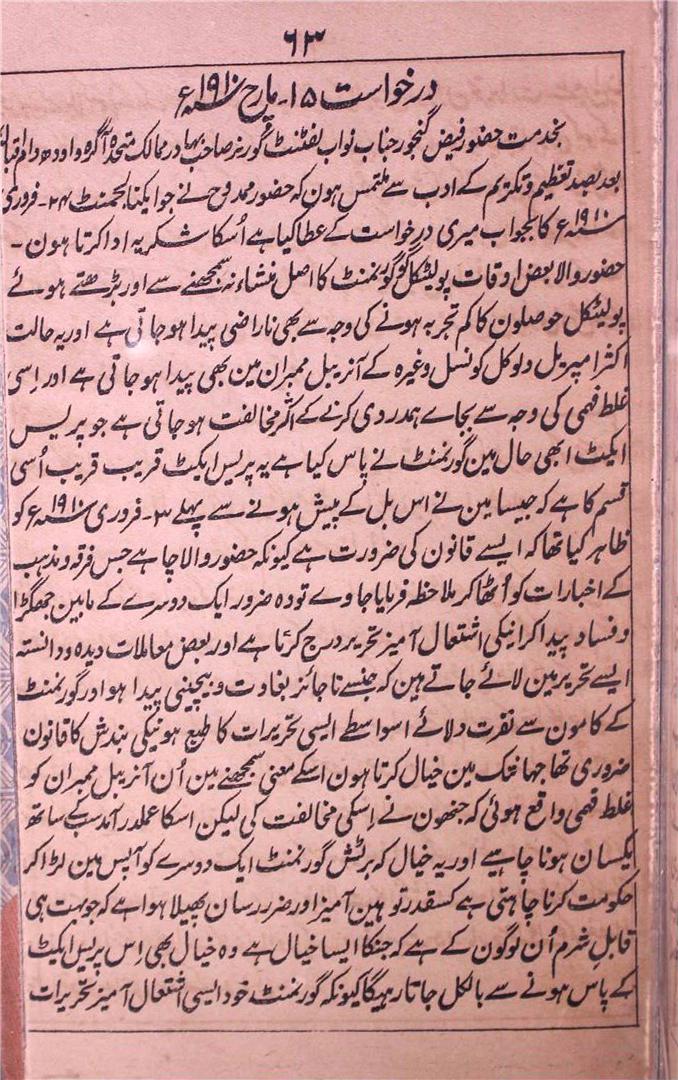 ۶۳
درخواست ۱۵۔ مارچ سنہ۱۹۱۰ء
بخدمت حضور فیض گنجور جناب نواب لفٹنٹ گورنر صاحب بہادر ممالک متحدہ آگرہ و اودھ دام اقبالہ
بعد بصد تعظیم و تکریم کے ادب سے ملتمس ہون کہ حضور ممدوح نے جو ایکنالجمنٹ ۲۴۔ فروری
سنہ۱۹۱۰ء کا بجواب میری درخواست کے عطا کیا ہے اُسکا شکریہ ادا کرتا ہون۔
حضور والا بعض اوقات پولیٹکل گورنمنٹ کا اصل منشاء نہ سمجھنے سے اور بڑھتے ہوئے
پولیٹکل حوصلون کا کم تجربہ ہونے کی وجہ سے بھی ناراضی پیدا ہو جاتی ہے اور یہ حالت
اکثر امپریل و لوکل کونسل وغیرہ کے آنریبل ممبران مین بھی پیدا ہو جاتی ہے اور اِسی
غلط فہمی کی وجہ سے بجاے ہمدردی کرنے کے اکثر مخالفت ہو جاتی ہے جو پریس
ایکٹ ابھی حال مین گورنمنٹ نے پاس کیا ہے یہ پریس ایکٹ قریب قریب اُسی
قسم کا ہے کہ جیسا مین نے اس بل کے پیش ہونے سے پہلے ۳۔ فروری سنہ۱۹۱۰ء کو
ظاہر کیا تھا کہ ایسے قانون کی ضرورت ہے کیونکہ حضور والا چاہے جس فرقہ و مذہب
کے اخبارات کو اُٹھا کر ملاحظہ فرمایا جاوے تو وہ ضرور ایک دوسرے کے مابین جھگڑا
و فساد پیدا کرانیکی اشتعال آمیز تحریر درج کرتا ہے اور بعض معاملات دیدہ و دانستہ
ایسے تحریر مین لائے جاتے ہین کہ جنسے ناجائز بغاوت و بیچینی پیدا ہو اور گورنمنٹ
کے کامون سے نفرت دلائے اسواسطے ایسی تحریرات کا طبع ہونیکی بندش کا قانون
ضروری تھا جہانتک مین خیال کرتا ہون اسکے معنی سمجھنے مین اُن آنریبل ممبران کو
غلط فہمی واقع ہوئی کہ جنھون نے اِسکی مخالفت کی لیکن اسکا عملدرآمد سب کے ساتھ
یکسان ہونا چاہیے اور یہ خیال کہ برٹش گورنمنٹ ایک دوسرے کو آپس مین لڑا کر
حکومت کرنا چاہتی ہے کسقدر توہین آمیز اور ضرر رسان پھیلا ہوا ہے کہ جو بہت ہی
قابل شرم اُن لوگون کے ہے کہ جنکا ایسا خیال ہے وہ خیال بھی اِس پریس ایکٹ
کے پاس ہونے سے بالکل جاتا رہیگا کیونکہ گورنمنٹ خود ایسی اشتعال آمیز تحریرات